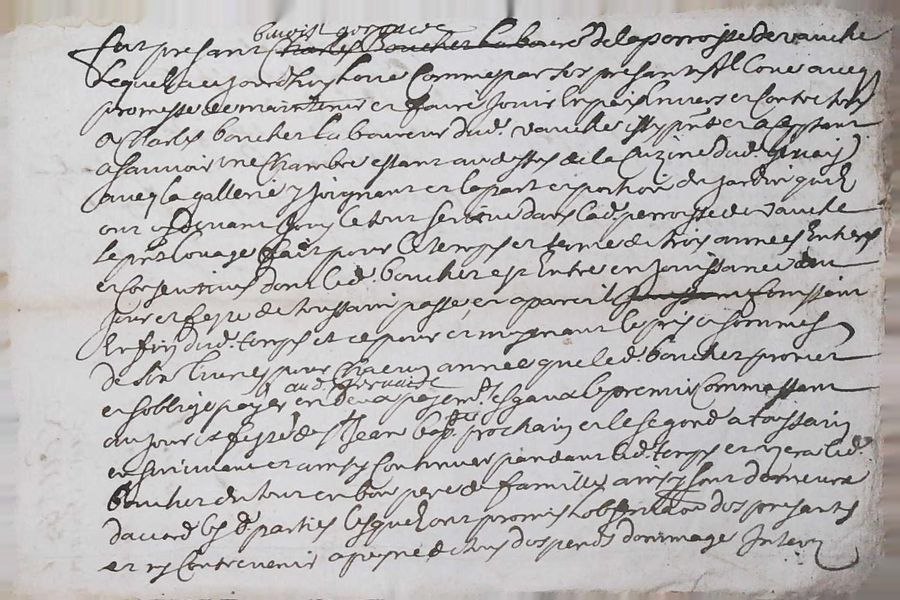 benoist gervaise
fut presant Charles Boucher laboure de la parroisse de vauche
lequel ce jourdhuy loue comme par ses presantes Il loue avecq
promesse de maintenir et faire jouir Enpaix Envers et contre tous
a Charles boucher laboureur dud. vauche issy pnt et aceptant
a sauvoir une chambre estant au dessus de la Cuzine dud.
avecq la gallerie y joignant et la part et portion du jardin quil
ont le tout scittue dans lad. parroisse de vauche
le pnt louage fait pour le temps et terme de trois années Entieres
et consecutives dont led. boucher est Entre en jouissance du
jour et feste de toussain passe et a pareil finissant
En fin dud. temps et ce pour et moyenant le prix et sommes
de six livres pour chacun année que led. boucher promet
et soblige payer aud. gervaise en deux payemts esgaux le premier commassant
au jour et feste de st Jean bapte. prochain et le segond a toussain
en suivant et ainsy continuer pandant led. temps et led.
boucher du tout en bon pere de famille ainsy sont demeure
daccord les d. parties lesquel ont promis obserer ces presantes
et ny contrevenir a peyne de tous despens domage Interes